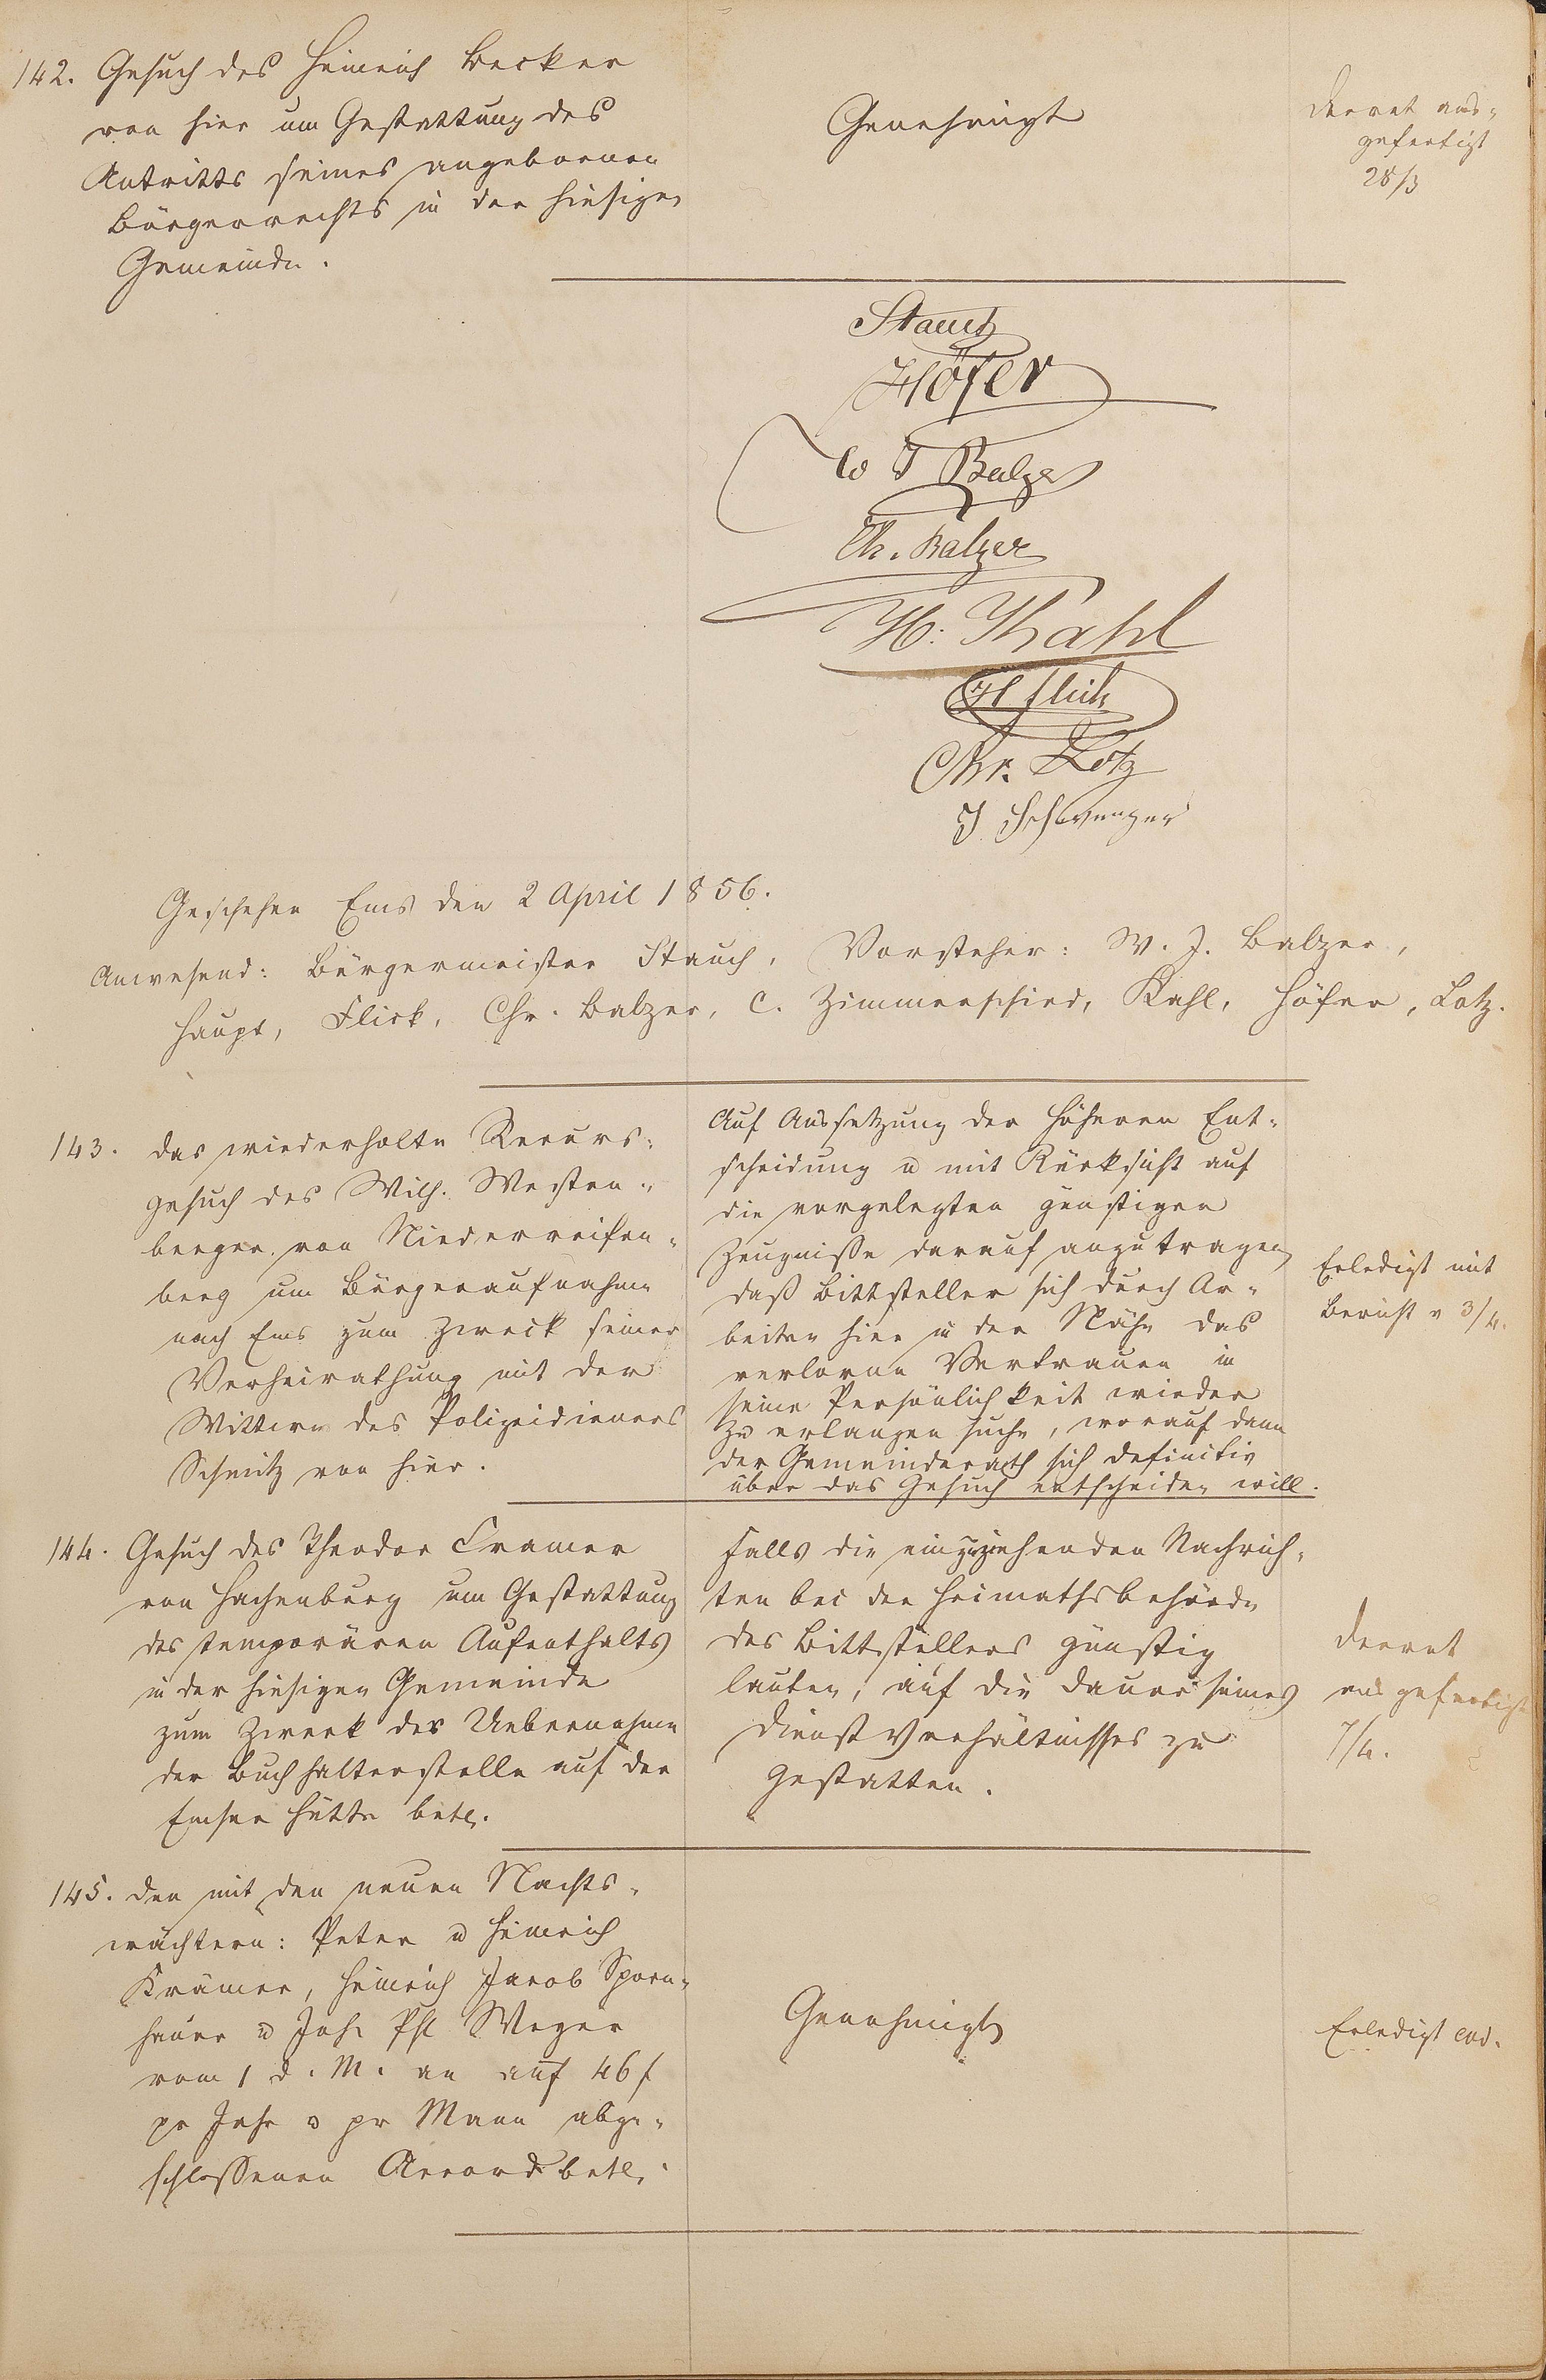 142. Gesuch des Heinrich Becker
von hier um Gestattung des
Antritts seines angebornen
Bürgerrechts in der hiesigen
Gemeinde.
Genehmigt
Decret aus-
gefertigt
28/3
Stauch
Höfer
W J Balzer
Chr. Balzer
H. Kahl
H Flick
Chr. Lotz
Geschehen Ems den 2 April 1856.
Anwesend: Bürgermeister Stauch, Vorsteher: W. J. Balzer,
Haupt, Flick, Chr. Balzer, C. Zimmerschied, Kahl, Höfer, Lotz.
143. Das wiederholte Recurs-
gesuch des Wilh. Westen-
berger von Niederreifen-
berg um Bürgeraufnahme
nach Ems zum Zweck seiner
Verheirathung mit der
Wittwe des Polizeidieners
Schmitz von hier.
Auf Aussetzung der höheren Ent-
scheidung u mit Rücksicht auf
die vorgelegten günstigen
Zeugnisse darauf anzutragen
daß Bittsteller sich durch Ar-
beiten hier in der Nähe das
verlorne Vertrauen in
seine Persönlichkeit wieder
zu erlangen suche, worauf dann
der Gemeinderath sich definitiv
über das Gesuch entscheiden will.
Erledigt mit
Bericht v 3/4.
144. Gesuch des Theodor Cramer
von Hachenburg um Gestattung
des temporären Aufenthalts
in der hiesigen Gemeinde
zum Zweck der Uebernahme
der Buchhalterstelle auf der
Emser Hütte betr.
Falls die einzuziehenden Nachrich-
ten bei der Heimathsbehörde
des Bittstellers günstig
lauten, auf die Dauer seines
Dienstverhältnisses zu
gestatten.
Decret
ausgefertigt
7/4.
145. Den mit den neuen Nacht-
wächtern: Peter u Heinrich
Krämer, Heinrich Jacob Sporn-
hauer u Joh Phl Weger
vom 1 d. M. an auf 46 f
pr Jahr u pr Mann abge-
schlossenen Accord betr.
Genehmigt
Erledigt eod.